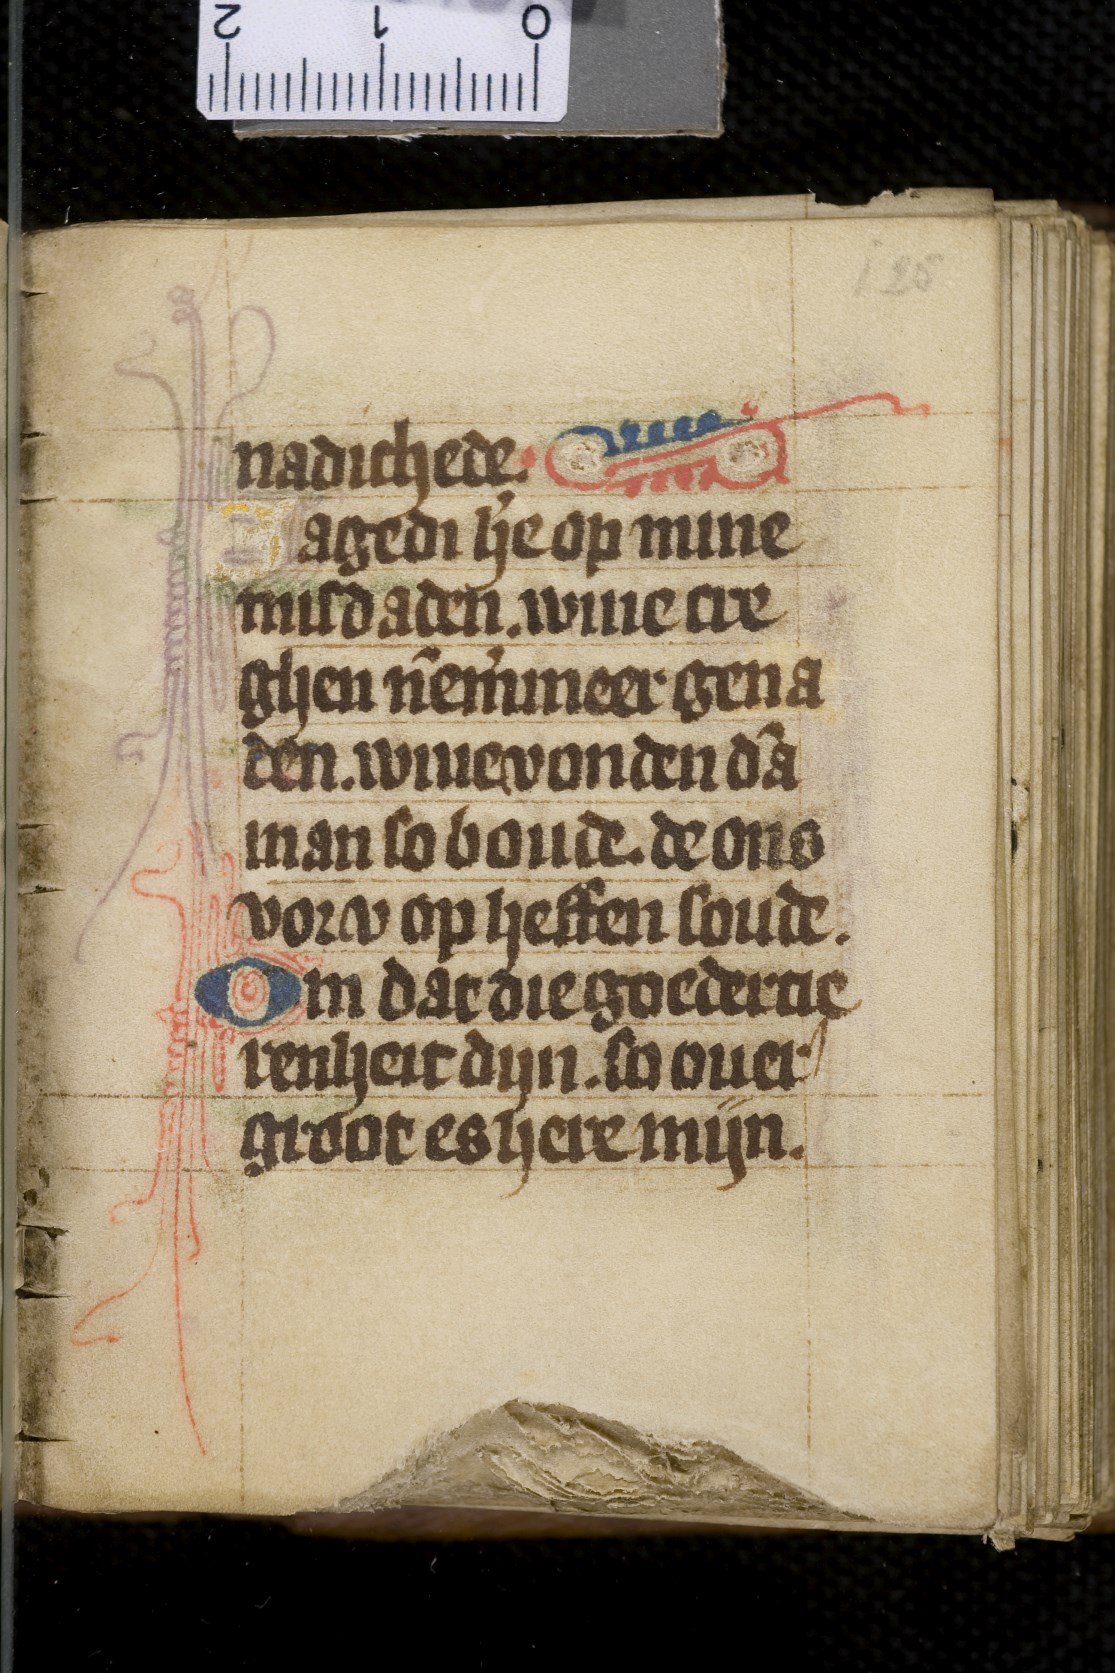 2 1 0
125
nadichede.
Sagedi h̄e op mine
misdaden. wiue cre
ghen nēm̄meer gena
den. wiue vonden dā
man so boude. de ons
vorw op heffen soude.
Om dat die goedertie
renheit dijn. so ouer
groot es here mijn.